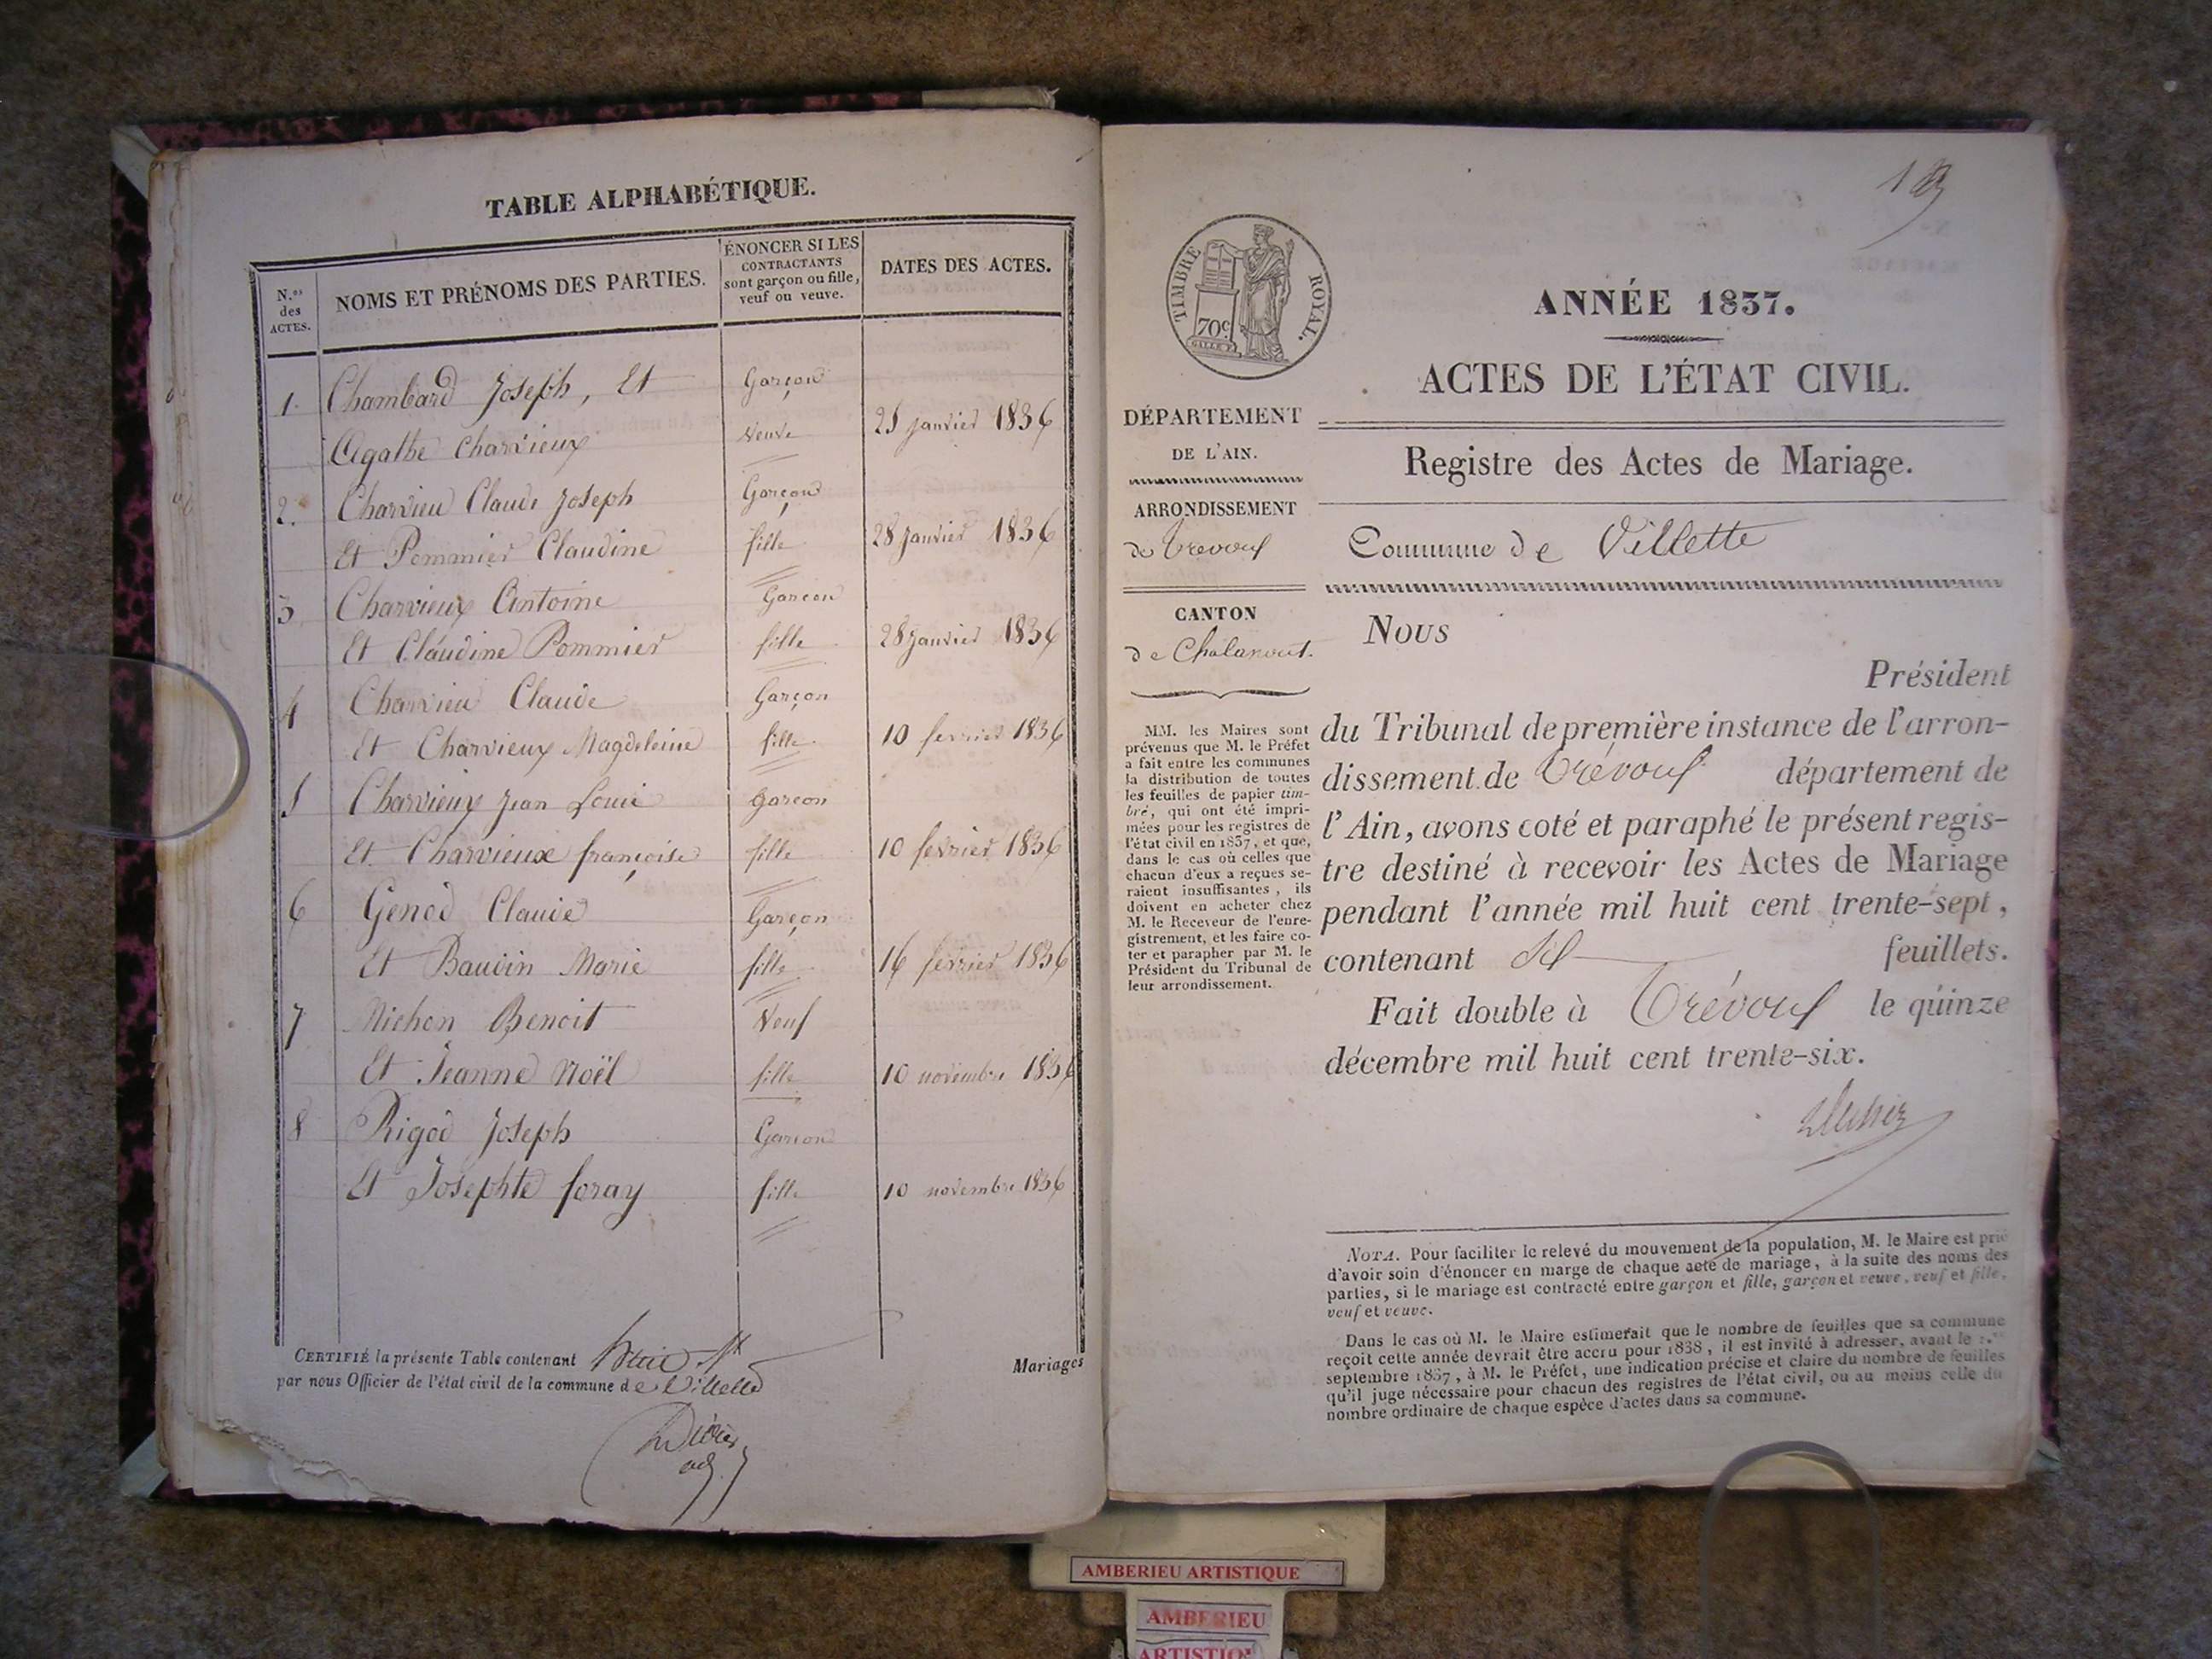 TABLE ALPHABÉTIQUE.
N.os des ACTES.
NOMS ET PRÉNOMS DES PARTIES.
ÉNONCER SI LES
CONTRACTANTS
sont garçon ou fille,
veuf ou veuve.
DATES DES ACTES.
1. Chambard Joseph, Et Garçon
Agathe Charvieux Veuve 25 janvier 1836
2. Charvieu Claude Joseph Garçon
Et Pommier Claudine fille 28 janvier 1836
3 Charvieux Antoine Garcon
Et Claudine Pommier fille 28 janvier 1836
4 Charvieu Claude Garçon
Et Charvieux Magdeleine fille 10 fevrier 1836
5 Charvieux Jean Loui garcon
Et Charvieux françoise fille 10 fevrier 1836
6 Genod Claude Garçon
Et Baudin Marie fille 16 fevrier 1836
7 Michon Benoit Veuf
Et Jeanne Noël fille 10 novembre 1836
8 Rigod Joseph Garcon
Et Josephte foray fille 10 novembre 1836
CERTIFIÉ la présente Table contenant huit Mariages
par nous Officier de l'état civil de la commune de Villette
TIMBRE ROYAL.
70c
ANNÉE 1837.
ACTES DE L'ÉTAT CIVIL.
DÉPARTEMENT
DE L'AIN.
Registre des Actes de Mariage.
ARRONDISSEMENT
de Trevoux
Commune de Villette
CANTON
de Chalamont.
MM. les Maires sont
prévenus que M. le Préfet
a fait entre les communes
la distribution de toutes
les feuilles de papier tim-
bré, qui ont été impri-
mées pour les registres de
l'état civil en 1837, et que,
dans le cas où celles que
chacun d'eux a reçues se-
raient insuffisantes, ils
doivent en acheter chez
M. le Receveur de l'enre-
gistrement, et les faire co-
ter et parapher par M. le
Président du Tribunal de
leur arrondissement.
Nous
Président
du Tribunal de première instance de l'arron-
dissement de Trévoux département de
l'Ain, avons coté et paraphé le présent regis-
tre destiné à recevoir les Actes de Mariage
pendant l'année mil huit cent trente-sept,
contenant feuillets.
Fait double à Trévoux le quinze
décembre mil huit cent trente-six.
NOTA. Pour faciliter le relevé du mouvement de la population, M. le Maire est prié
d'avoir soin d'énoncer en marge de chaque acte de mariage, à la suite des noms des
parties, si le mariage est contracté entre garçon et fille, garçon et veuve, veuf et fille,
veuf et veuve.
Dans le cas où M. le Maire estimerait que le nombre de feuilles que sa commune
reçoit cette année devrait être accru pour 1838, il est invité à adresser, avant le 1.er
septembre 1837, à M. le Préfet, une indication précise et claire du nombre de feuilles
qu'il juge nécessaire pour chacun des registres de l'état civil, ou au moins celle du
nombre ordinaire de chaque espèce d'actes dans sa commune.
AMBERIEU ARTISTIQUE
AMBERIEU